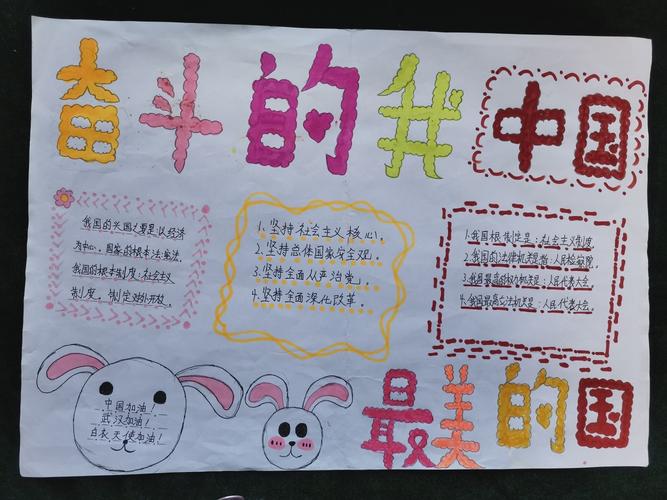 奋斗的我中国
我国的兴国之要是：以经济
为中心。国家的根本法：宪法
我国的根本制度：社会主义
制度。制定对外开放。
1. 坚持社会主义核心。
2. 坚持总体国家安全观。
3. 坚持全面从严治党。
4. 坚持全面深化改革。
1. 我国根制定是：社会主义制度
2. 我国的法律机关是指：人民检察院。
3. 我国最高的权力机关是：人民代表大会
4. 我国最高立法机关是：人民代表大会。
中国加油！
武汉加油！
白衣天使加油！
最美的国